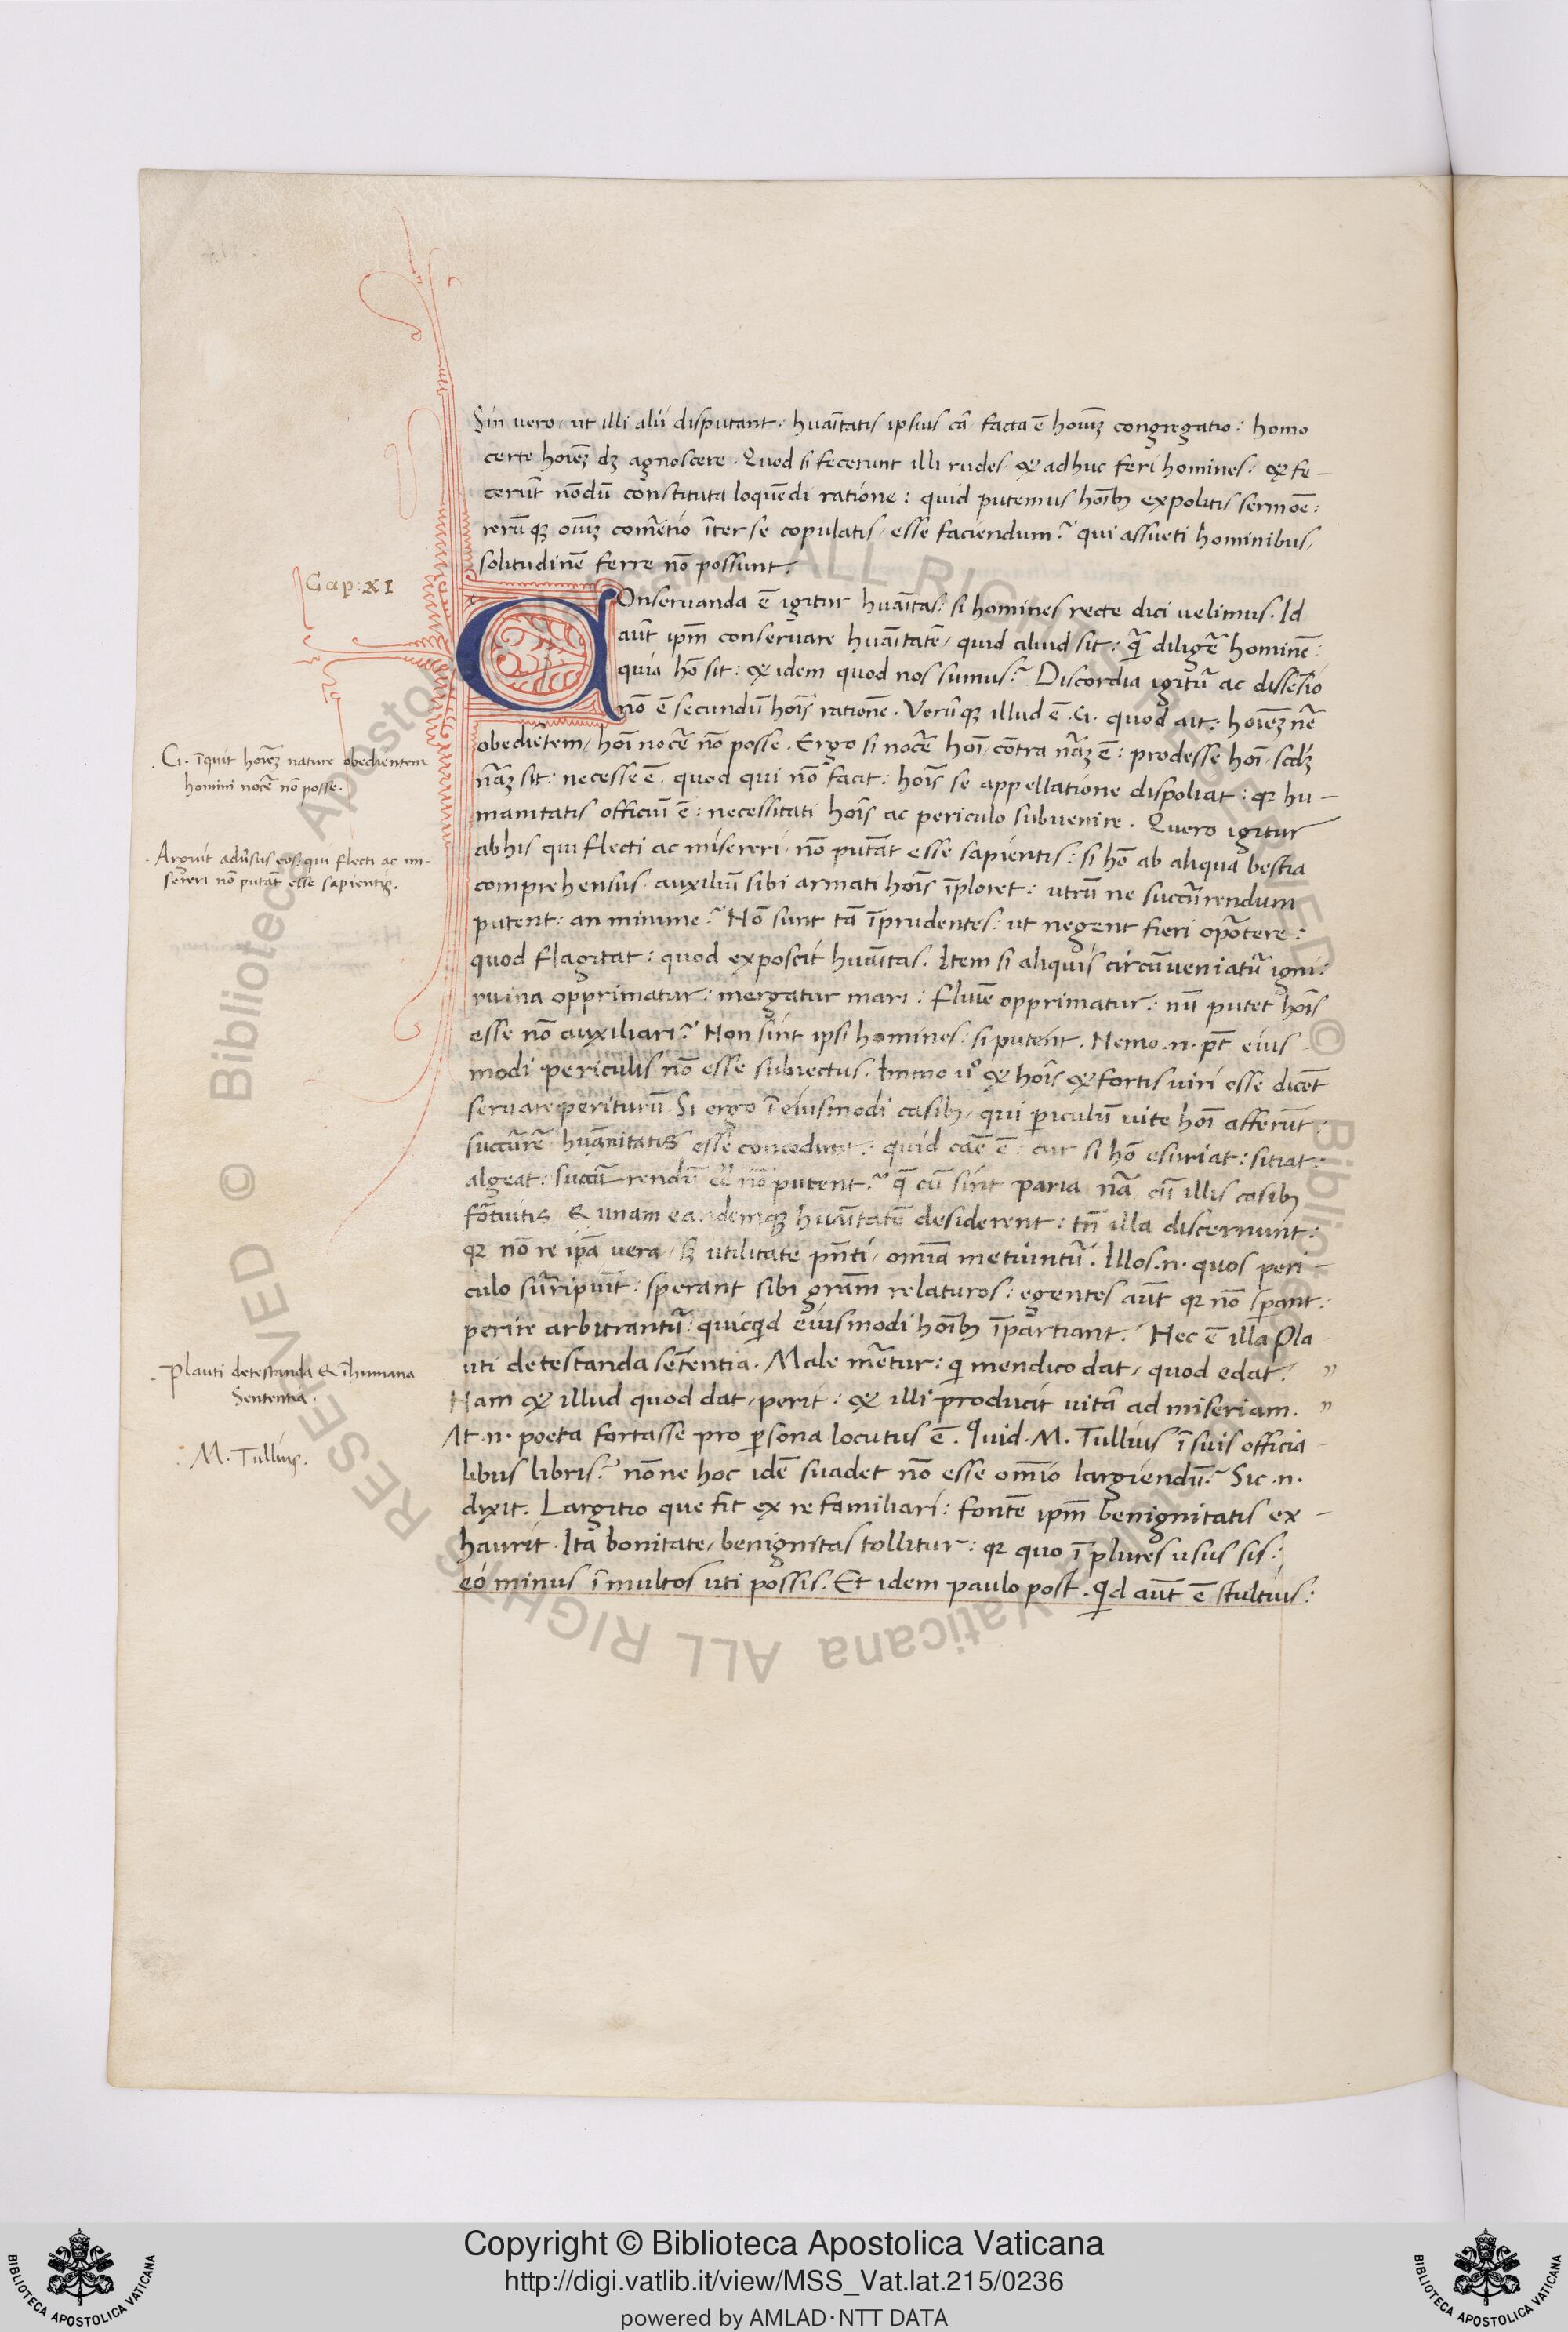 Sin uero, ut illi alii disputant: huāītatis ipsius cā facta ē hoīuʒ congregatio: homo
certe hoīeʒ dʒ agnoscere. Quod si fecerunt illi rudes & adhuc feri homines: & fe-
cerūt nōdū constituta loquēdi ratione: quid putemus hoībʒ expolitis sermōe:
rerūqʒ oīuʒ comētio īter se copulatis, esse faciendum? qui assueti hominibus,
solitudinē ferre nō possunt.
Cap: XI
COnseruanda ē igitur huāītas: si homines recte dici uelimus. Id
aūt ipm̄ conseruare huāītatē, quid aliud sit: q̄ diligē hominē:
quia hō sit: & idem quod nos sumus? Discordia igitū ac dissēsio
nō ē secundū hoīs rationē. Verūqʒ illud ē .Ci. quod ait: hoīeʒ nē
obediētem, hoī nocē nō posse. Ergo si nocē hoī, cōtra nāʒ ē: prodesse hoī, scdʒ
nāʒ sit: necesse ē. quod qui nō facit: hoīs se appellatione dispoliat: qr hu-
manitatis officiū ē: necessitati hoīs ac periculo subuenire. Quero igitur
ab his qui flecti ac misereri, nō putāt esse sapientis: si hō ab aliqua bestia
comprehensus auxiliū sibi armati hoīs īploret: utrū ne succūrendum
putent: an minime? Nō sunt tā īprudentes: ut negent fieri opōtere:
quod flagitat: quod exposcit huāītas. Item si aliquis circūueniatū igni:
ruina opprimatur: mergatur mari: fluīe opprimatur: nū putet hoīs
esse nō auxiliari? Non sint ipsi homines: si putent. Nemo .n. pt̄ eius
modi periculis nō esse subiectus. Immo uº & hoīs & fortis uiri esse dicēt
seruare periturū. Si ergo ī eiusmodi casibʒ, qui piculū uite hoī afferūt:
succūrē huāīnitatis esse concedunt: quid cāē ē: cur si hō esuriat: sitiat:
algeat: succūrendū eē nō putent? q̄ cū sint paria nā, cū illis casibʒ
fōtuitis & unam eandemqʒ huāītatē desiderent: tn̄ illa discernunt:
qr nō re ipā uera, sʒ utilitate pn̄ti, omīa metiuntū. Illos .n. quos peri-
culo sūripuīt: sperant sibi grām relaturos: egentes aūt qr nō spant:
perire arbitrantū: quicqd eiusmodi hoībʒ īpartiant. Hec ē illa Pla
uti detestanda sētentia. Male mētur: qi mendico dat, quod edat. ,,
Nam & illud quod dat, perit: & illi producit uitā ad miseriam. ,,
At .n. poeta fortasse pro psona locutus ē. Quid .M. Tullius ī suis officia-
libus libris? nōne hoc idē suadet nō esse omīo largiendū? Sic .n.
dixit. Largitio que fit ex re familiari: fontē ipm̄ benignitatis ex-
haurit. Ita bonitate, benignitas tollitur: qr quo ī plures usus sis:
eo minus ī multos uti possis. Et idem paulo post. Qd aūt ē stultius:
Ci. īquit hoīeʒ nature obedientem
homini nocē nō posse.
Arguit adūsus eos: qui flecti ac mi-
sereri nō putāt esse sapientis.
Plauti detestanda & īhumana
Sententia.
M. Tullius.
Copyright © Biblioteca Apostolica Vaticana
http://digi.vatlib.it/view/MSS_Vat.lat.215/0236
powered by AMLAD·NTT DATA
BIBLIOTECA APOSTOLICA VATICANA
BIBLIOTECA APOSTOLICA VATICANA